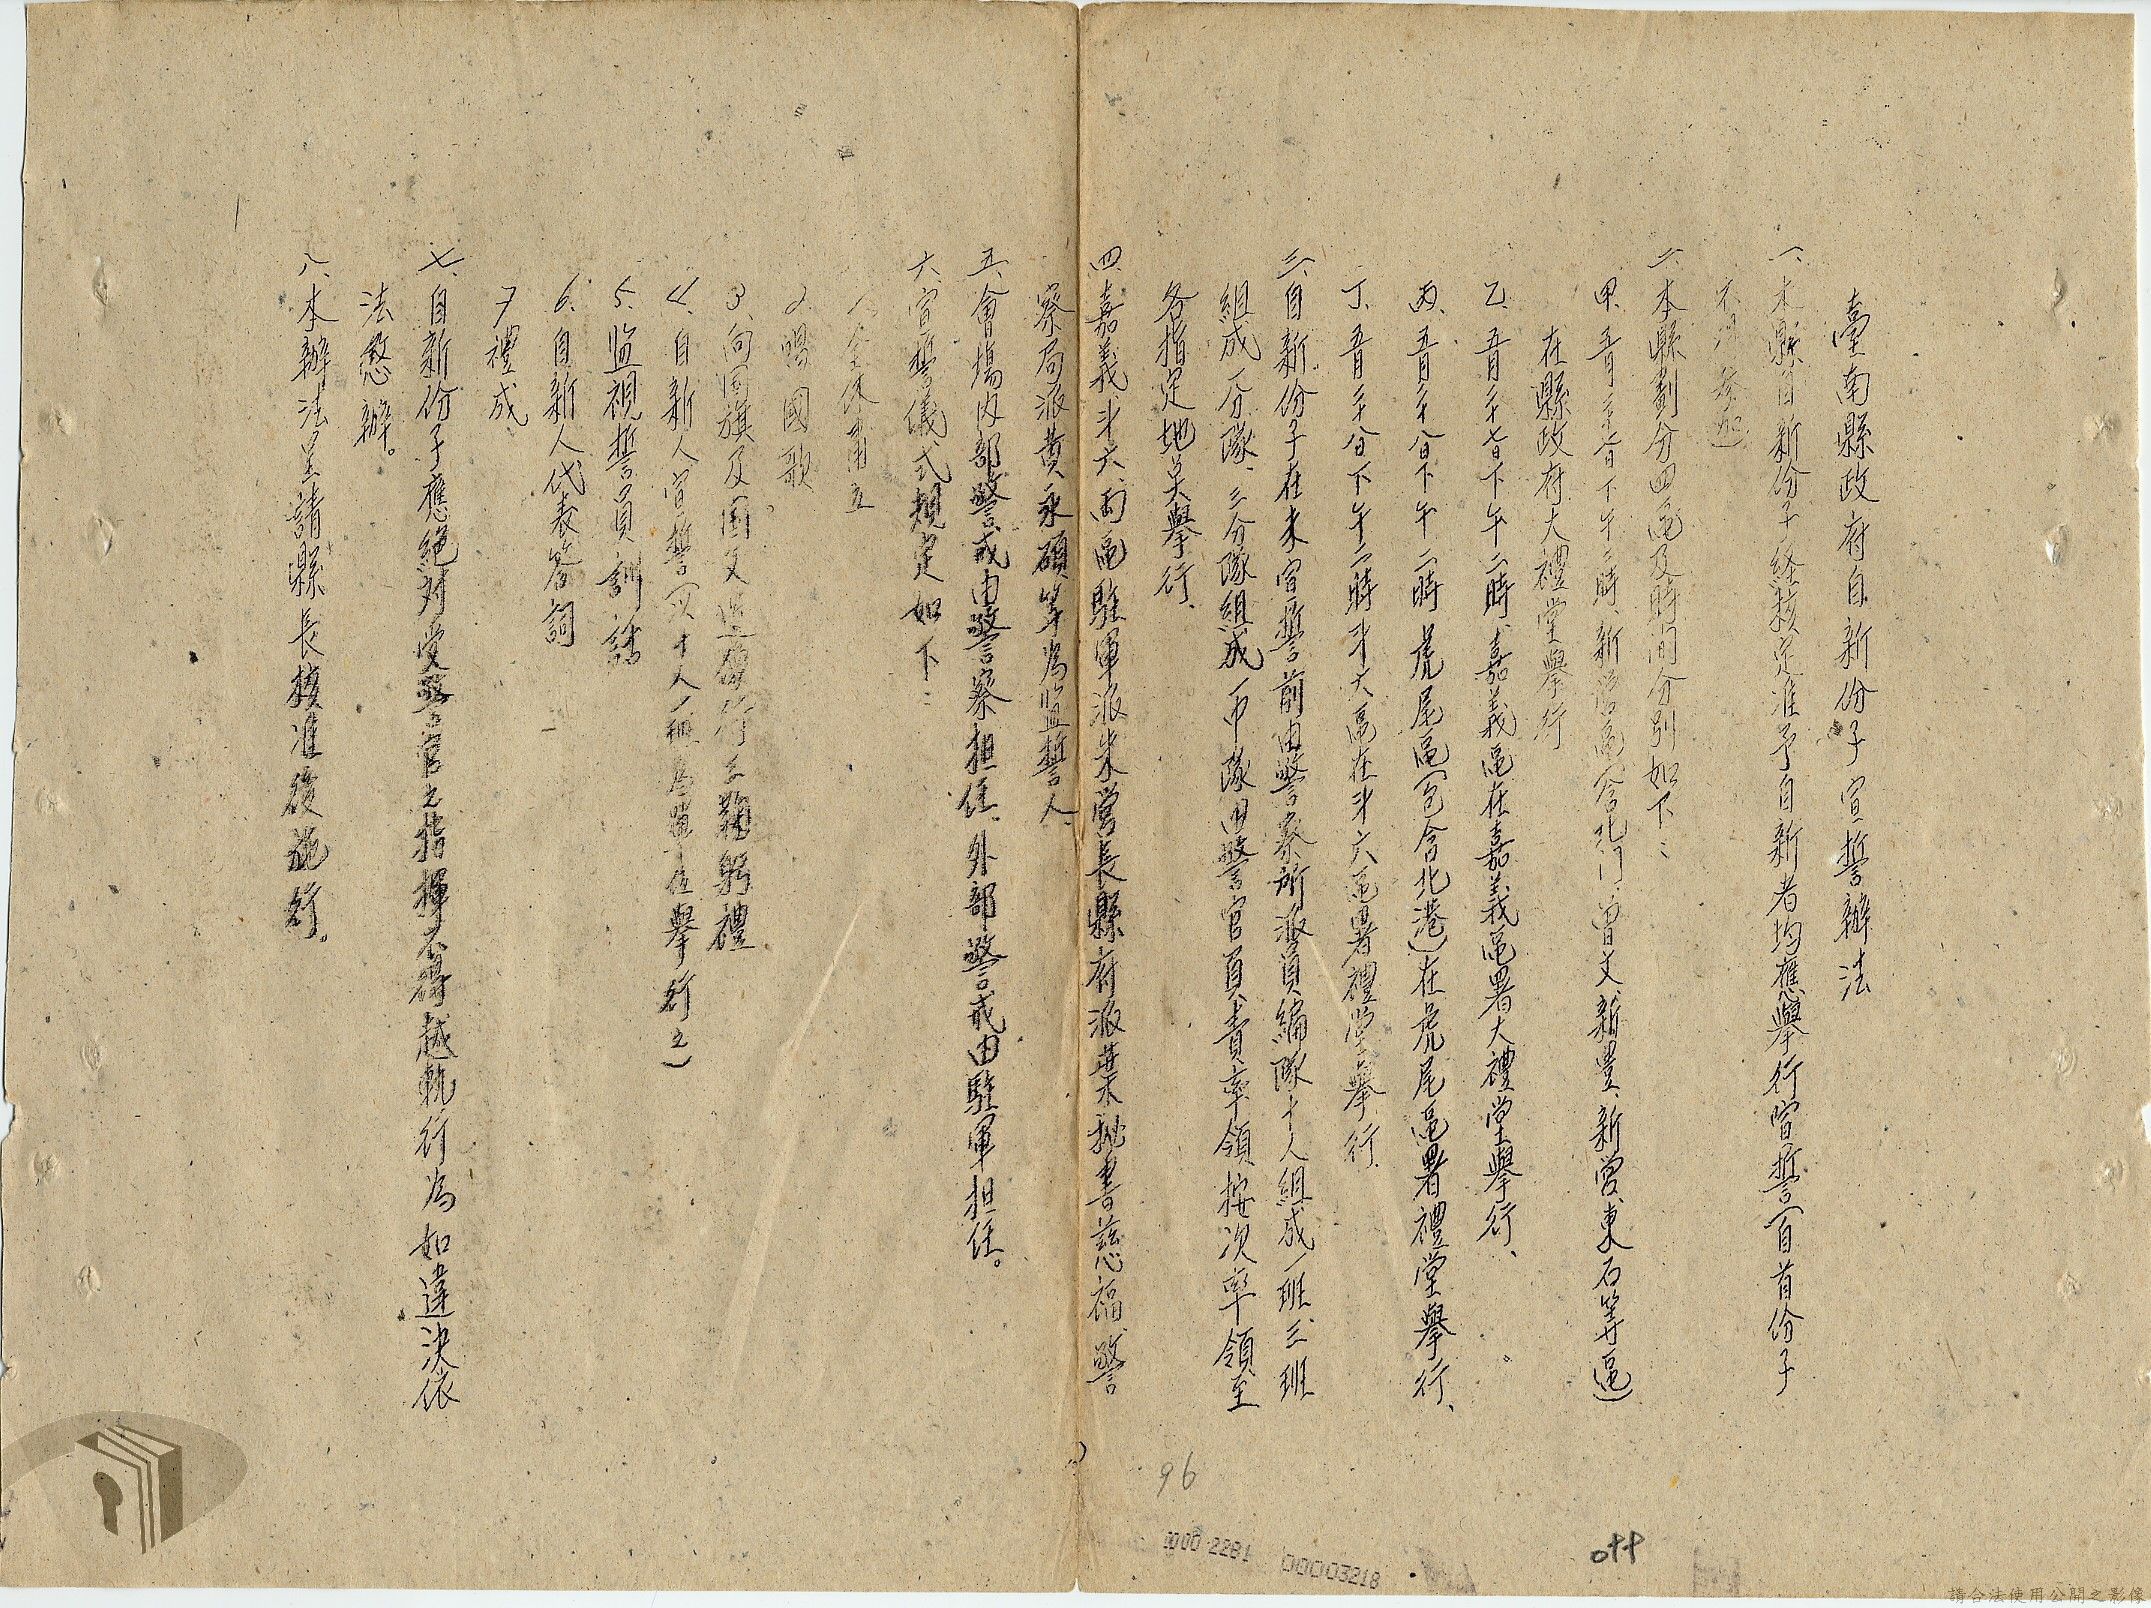 臺南縣政府自新份子宣誓辦法
一、本縣自新份子経核定准予自新者均應舉行宣誓(盲首份子
不得參加)
二、本縣劃分四區及時間分別如下：
甲、五月二十七日下午二時、新營區(含北门、曾文、新豐、新營、東石等區)
在縣政府大禮堂舉行
乙、五月二十七日下午二時、嘉義區在嘉義區署大禮堂舉行、
丙、五月二十八日下午二時 虎尾區(包含北港)在虎尾區署禮堂舉行、
丁、五月二十八日下午二時斗六區在斗六區署禮堂舉行、
三、自新份子在未宣誓前由警察所派員編隊十人組成一班、三班
組成一分隊、三分隊組成一中隊由警官員責率領按次率領至
各指定地奌舉行、
四、嘉義斗六、兩區駐軍派朱營長縣府派葉秘書慈福、警
察局派黃永碩等為监誓人、
五、會場内部警戒由警察担任、外部警戒由駐軍担任。
六、宣誓儀式規定如下：
1、全体肅立
2、唱國歌
3、向国旗及国父遺像行三鞠躬禮
4、自新人宣誓(以十人一班為單位舉行之)
5、监視誓員訓話
6、自新人代表答詞
7、禮成
七、自新份子應絕对受警官之指揮不得越軌行為如違決依
法懲辦。
八、本辦法呈請縣長核准後施行。
96
00002281
00003218
044
請合法使用公開之影像